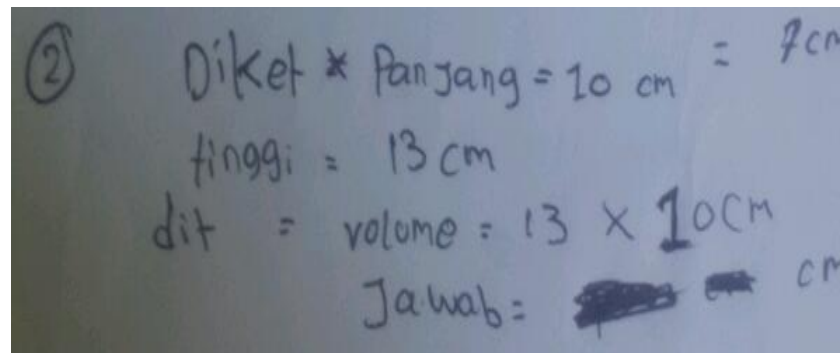 2 Diket * Panjang = 10 cm = 7 cm
tinggi = 13 cm
dit = volume = 13 x 10 cm
Jawab = cm